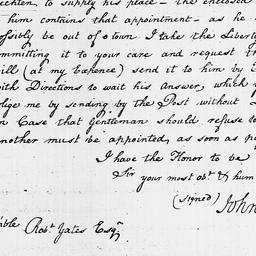 to supply his place – the enclosed
him contains that appointment – as he
be out of town I take the Liberty
committing it to your care and request
will (at my Expence) send it to him by
with Directions to wait his Answer, which
me by sending by the Post without
Case that Gentleman should refuse to
another must be appointed, as soon as
I have the Honor to be
Sir your most obt & hum
(signed) John
Robt Yates Esqr